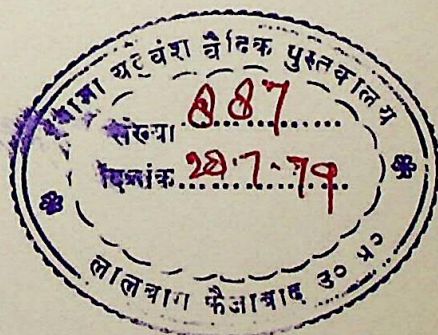 यदुवंश वैदिक पुस्तकालय
संख्या 887
दिनांक 28.7.79
लालबाग फैजाबाद उ० प्र०